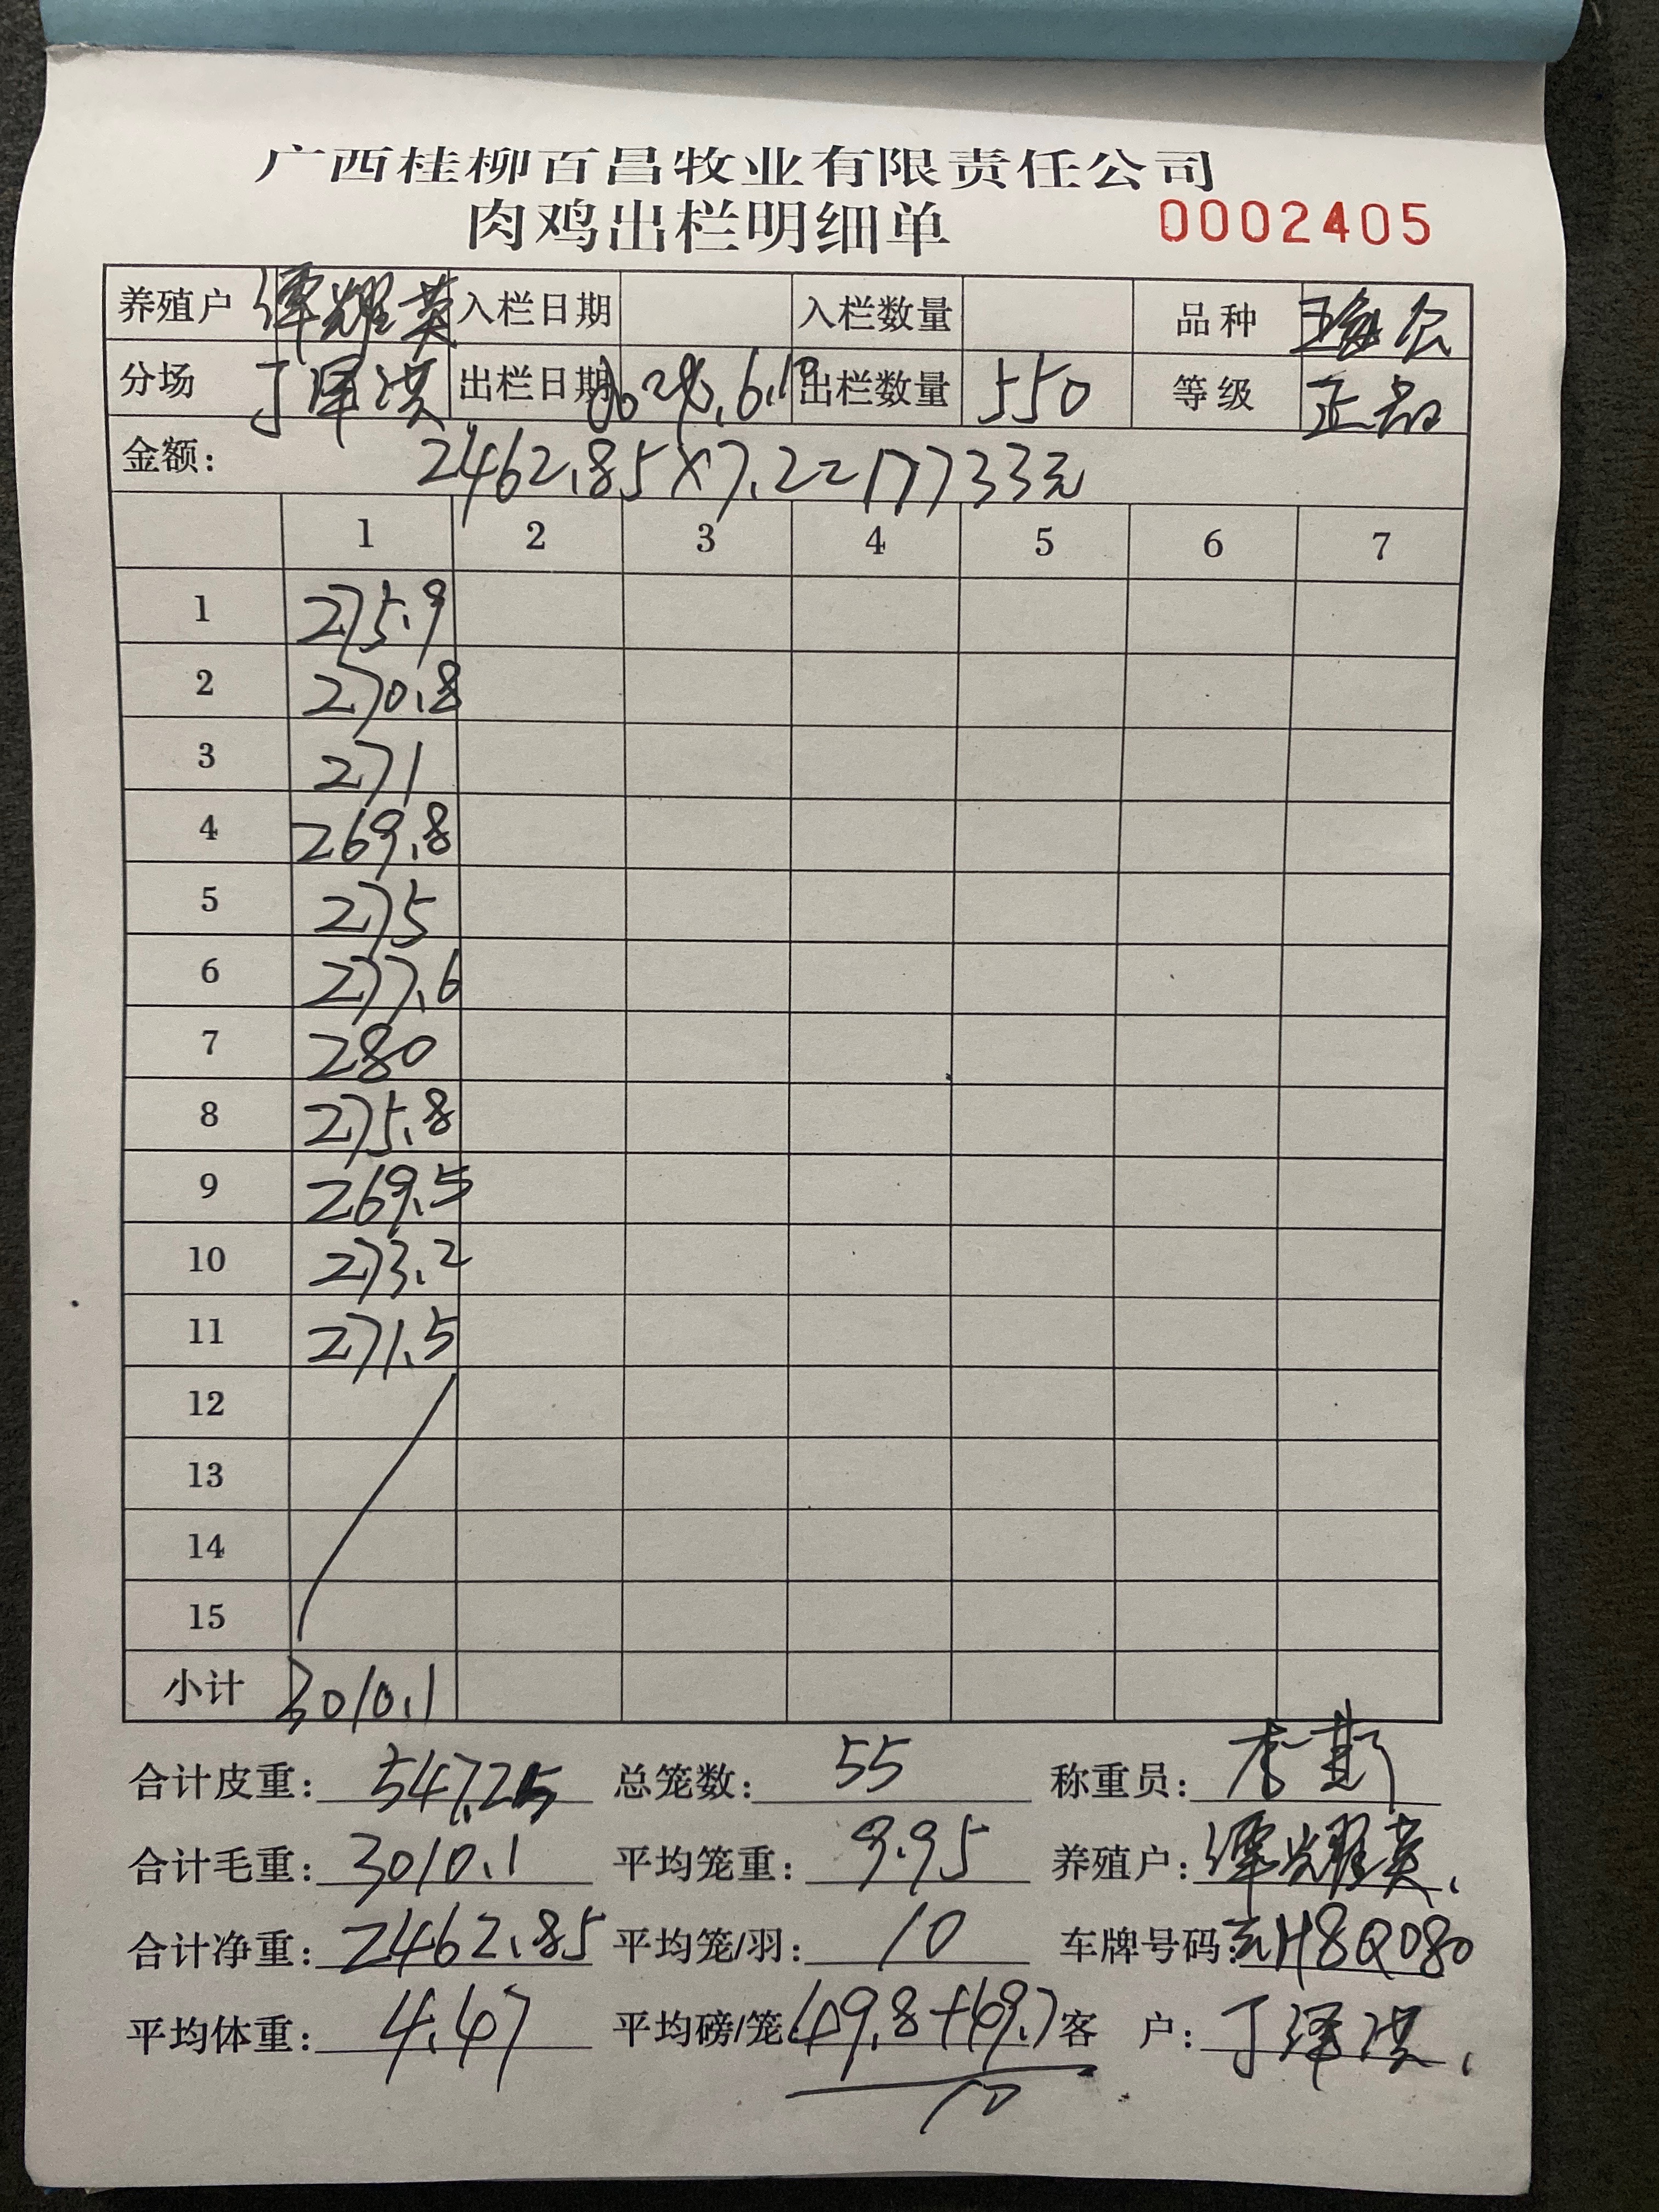 广西桂柳百昌牧业有限责任公司
肉鸡出栏明细单 0002405
养殖户 谭耀英 入栏日期 入栏数量 品种
分场 丁泽洪 出栏日期 出栏数量 550 等级 正品
金额: 2462.85×7.2=17733元
1 2 3 4 5 6 7
1 275.9
2 270.8
3 271
4 269.8
5 275
6 277.6
7 280
8 275.8
9 269.5
10 273.2
11 271.5
12
13
14
15
小计 3010.1
合计皮重: 547.25 总笼数: 55 称重员: 李
合计毛重: 3010.1 平均笼重: 9.95 养殖户: 谭耀英
合计净重: 2462.85 平均笼/羽: 10 车牌号码: H8Q080
平均体重: 4.47 平均磅/笼 (49.8+49.7 客 户: 丁泽洪
10